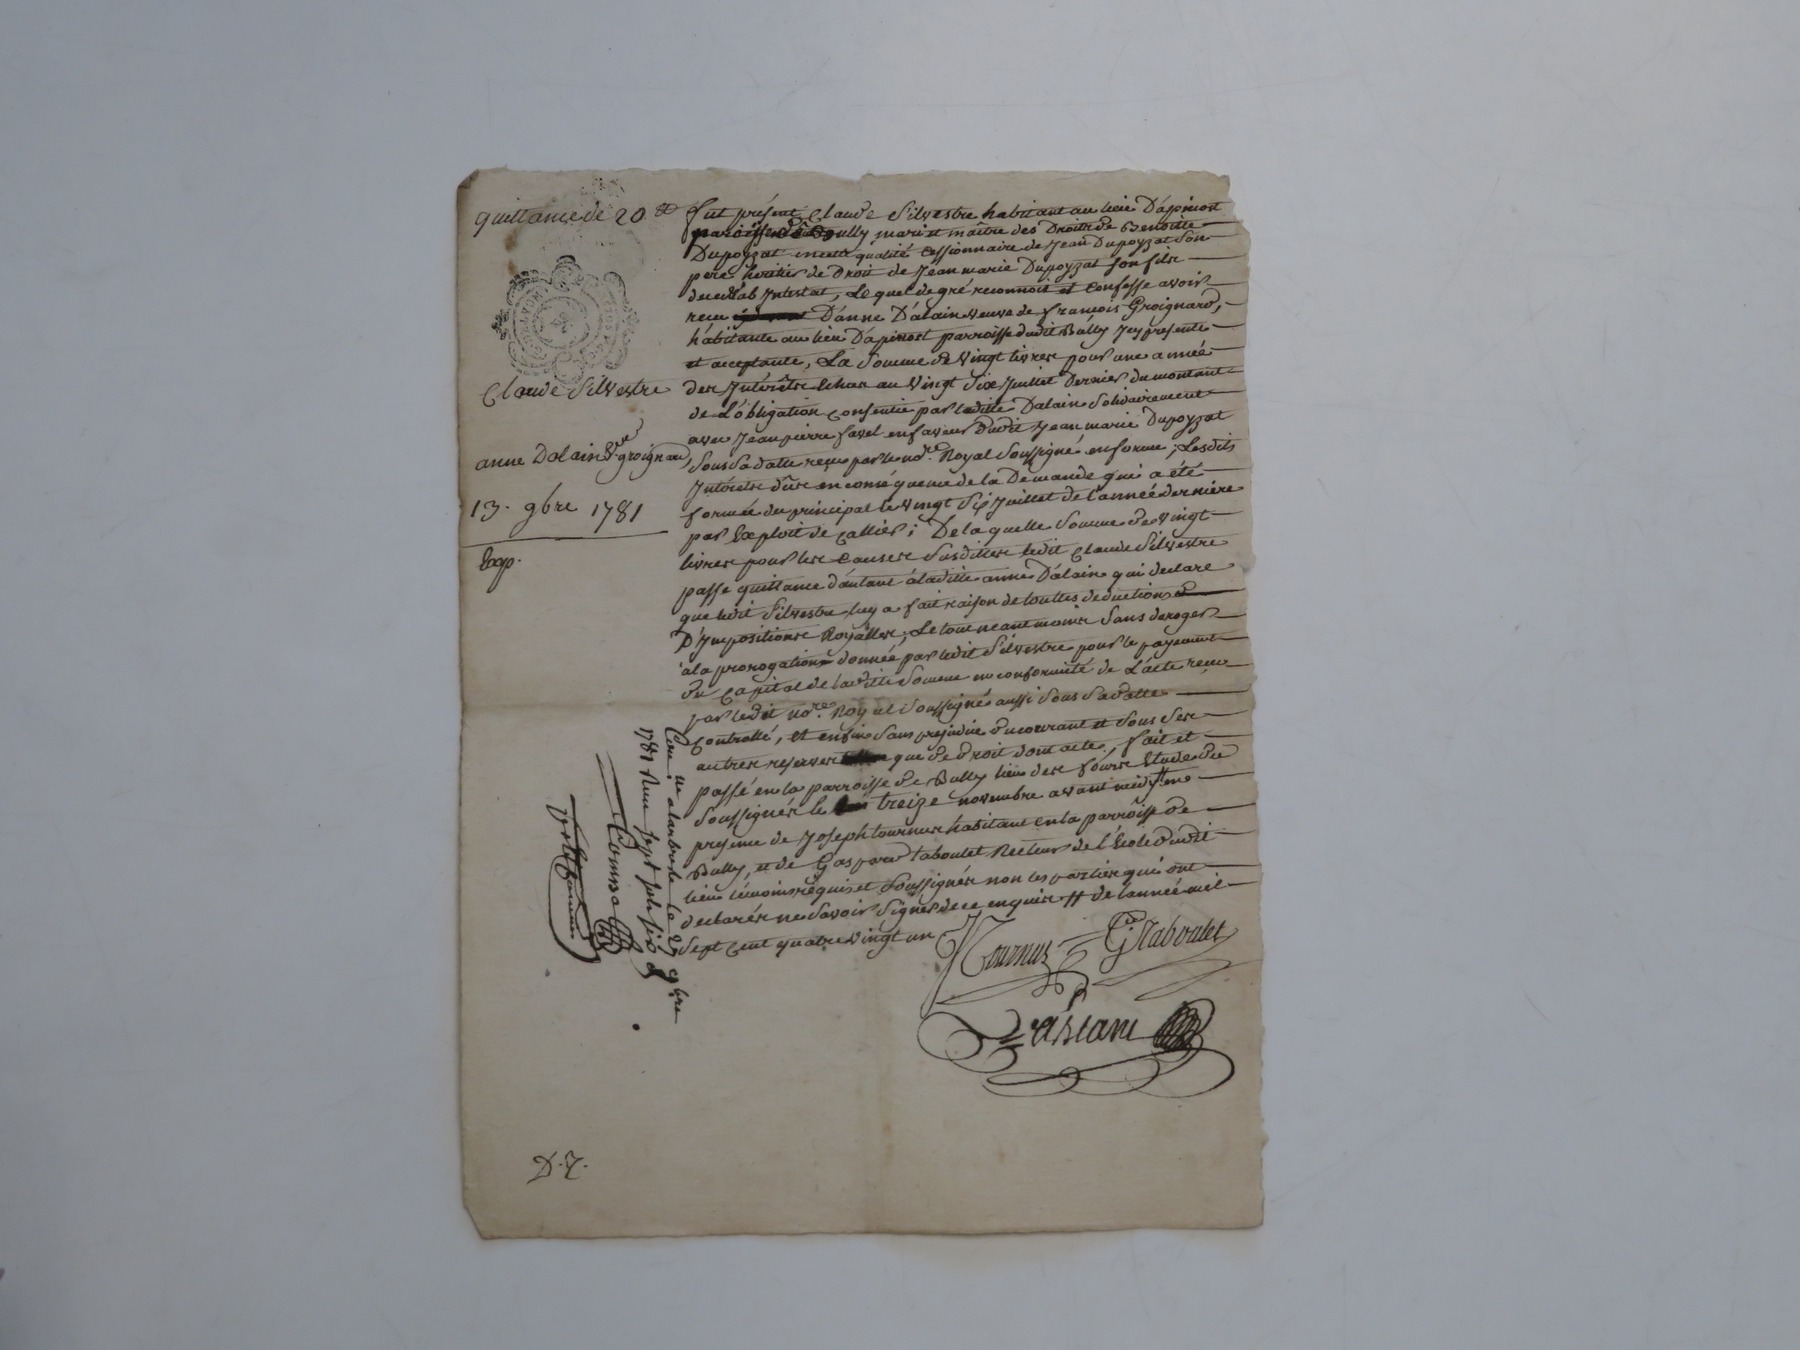 quittance de 20 ^tt
Claude Silvestre
anne Dalain V^ve groignard
13. 9bre 1781
Exp.
fut présent Claude Silvestre habitant au lieu D'apinost
Bully mari et maitre des Droits de Benoitte
Dupoyzat en cette qualité Cessionnaire de Jean Dupoyzat Son
pere heritier de Droit de Jean marie Dupoyzat son fils
decedé ab Intestat, Le quel de gré reconnoit et Confesse avoir
reçu D'anne D'alain veuve de françois Groignard,
habitante au lieu D'apinost parroisse dudit Bully Icy presente
et acceptante, La Somme de Vingt livres pour une année
des Intérêts Echus au Vingt Six Juillet Dernier du montant
de L'obligation Consentie par laditte Dalain Solidairement
avec Jean pierre favel en faveur Dudit Jean marie Dupoyzat
Sous Sa datte reçue par le no^re. Royal Soussigné en forme; Lesdits
Intérêts dûs en consequence de la Demande qui a été
formée du principal le Vingt Six Juillet de l'année derniere
par Exploit de Callier; De la quelle Somme de Vingt
livres pour les Causes Susdittes ledit Claude Silvestre
passe quittance d'autant à laditte anne D'alain qui declare
que ledit Silvestre luy a fait raison de touttes deductions
D'Impositions Royalles, Le tout neantmoins Sans deroger
à la prorogation donnée par ledit Silvestre pour le payement
du Capital de laditte Somme en conformité de L'acte reçu
par ledit no^re. Royal Soussigné aussi Sous Sa datte
Controllé, et enfin Sans prejudice du courant et Sous Ses
autres reserves que de Droit dont acte, fait et
passé en la parroisse de Bully lieu des fours Etude du
Soussigné le treize novembre avant midy # en
presence de Joseph tournus habitant en la parroisse de
Bully, et de Gaspard taboulet Recteur de l'Ecole dudit
lieu témoins requis et Soussignés non les parties qui ont
declarés ne Savoir Signer de ce enquis # de l'année mil
Sept Cent quatre Vingt un
Tournus
G. Taboulet
le 27 9bre
1781 Reçu Sept Sols six d
D. 7.